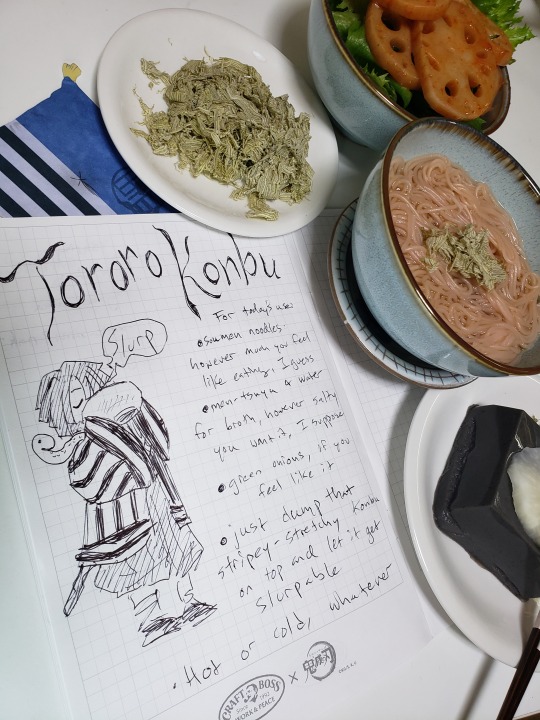 Tororo Konbu
Slurp
For today's use:
•soumen noodles-
however much you feel
like eating, I guess
•men-tsuyu & water
for broth, however salty
you want it, I suppose
•green onions, if you
feel like it
•just dump that
stripey-stretchy konbu
on top and let it get
slurpable
•Hot or cold, whatever
CRAFT BOSS
Since 1992
WORK & PEACE
×
鬼滅の刃